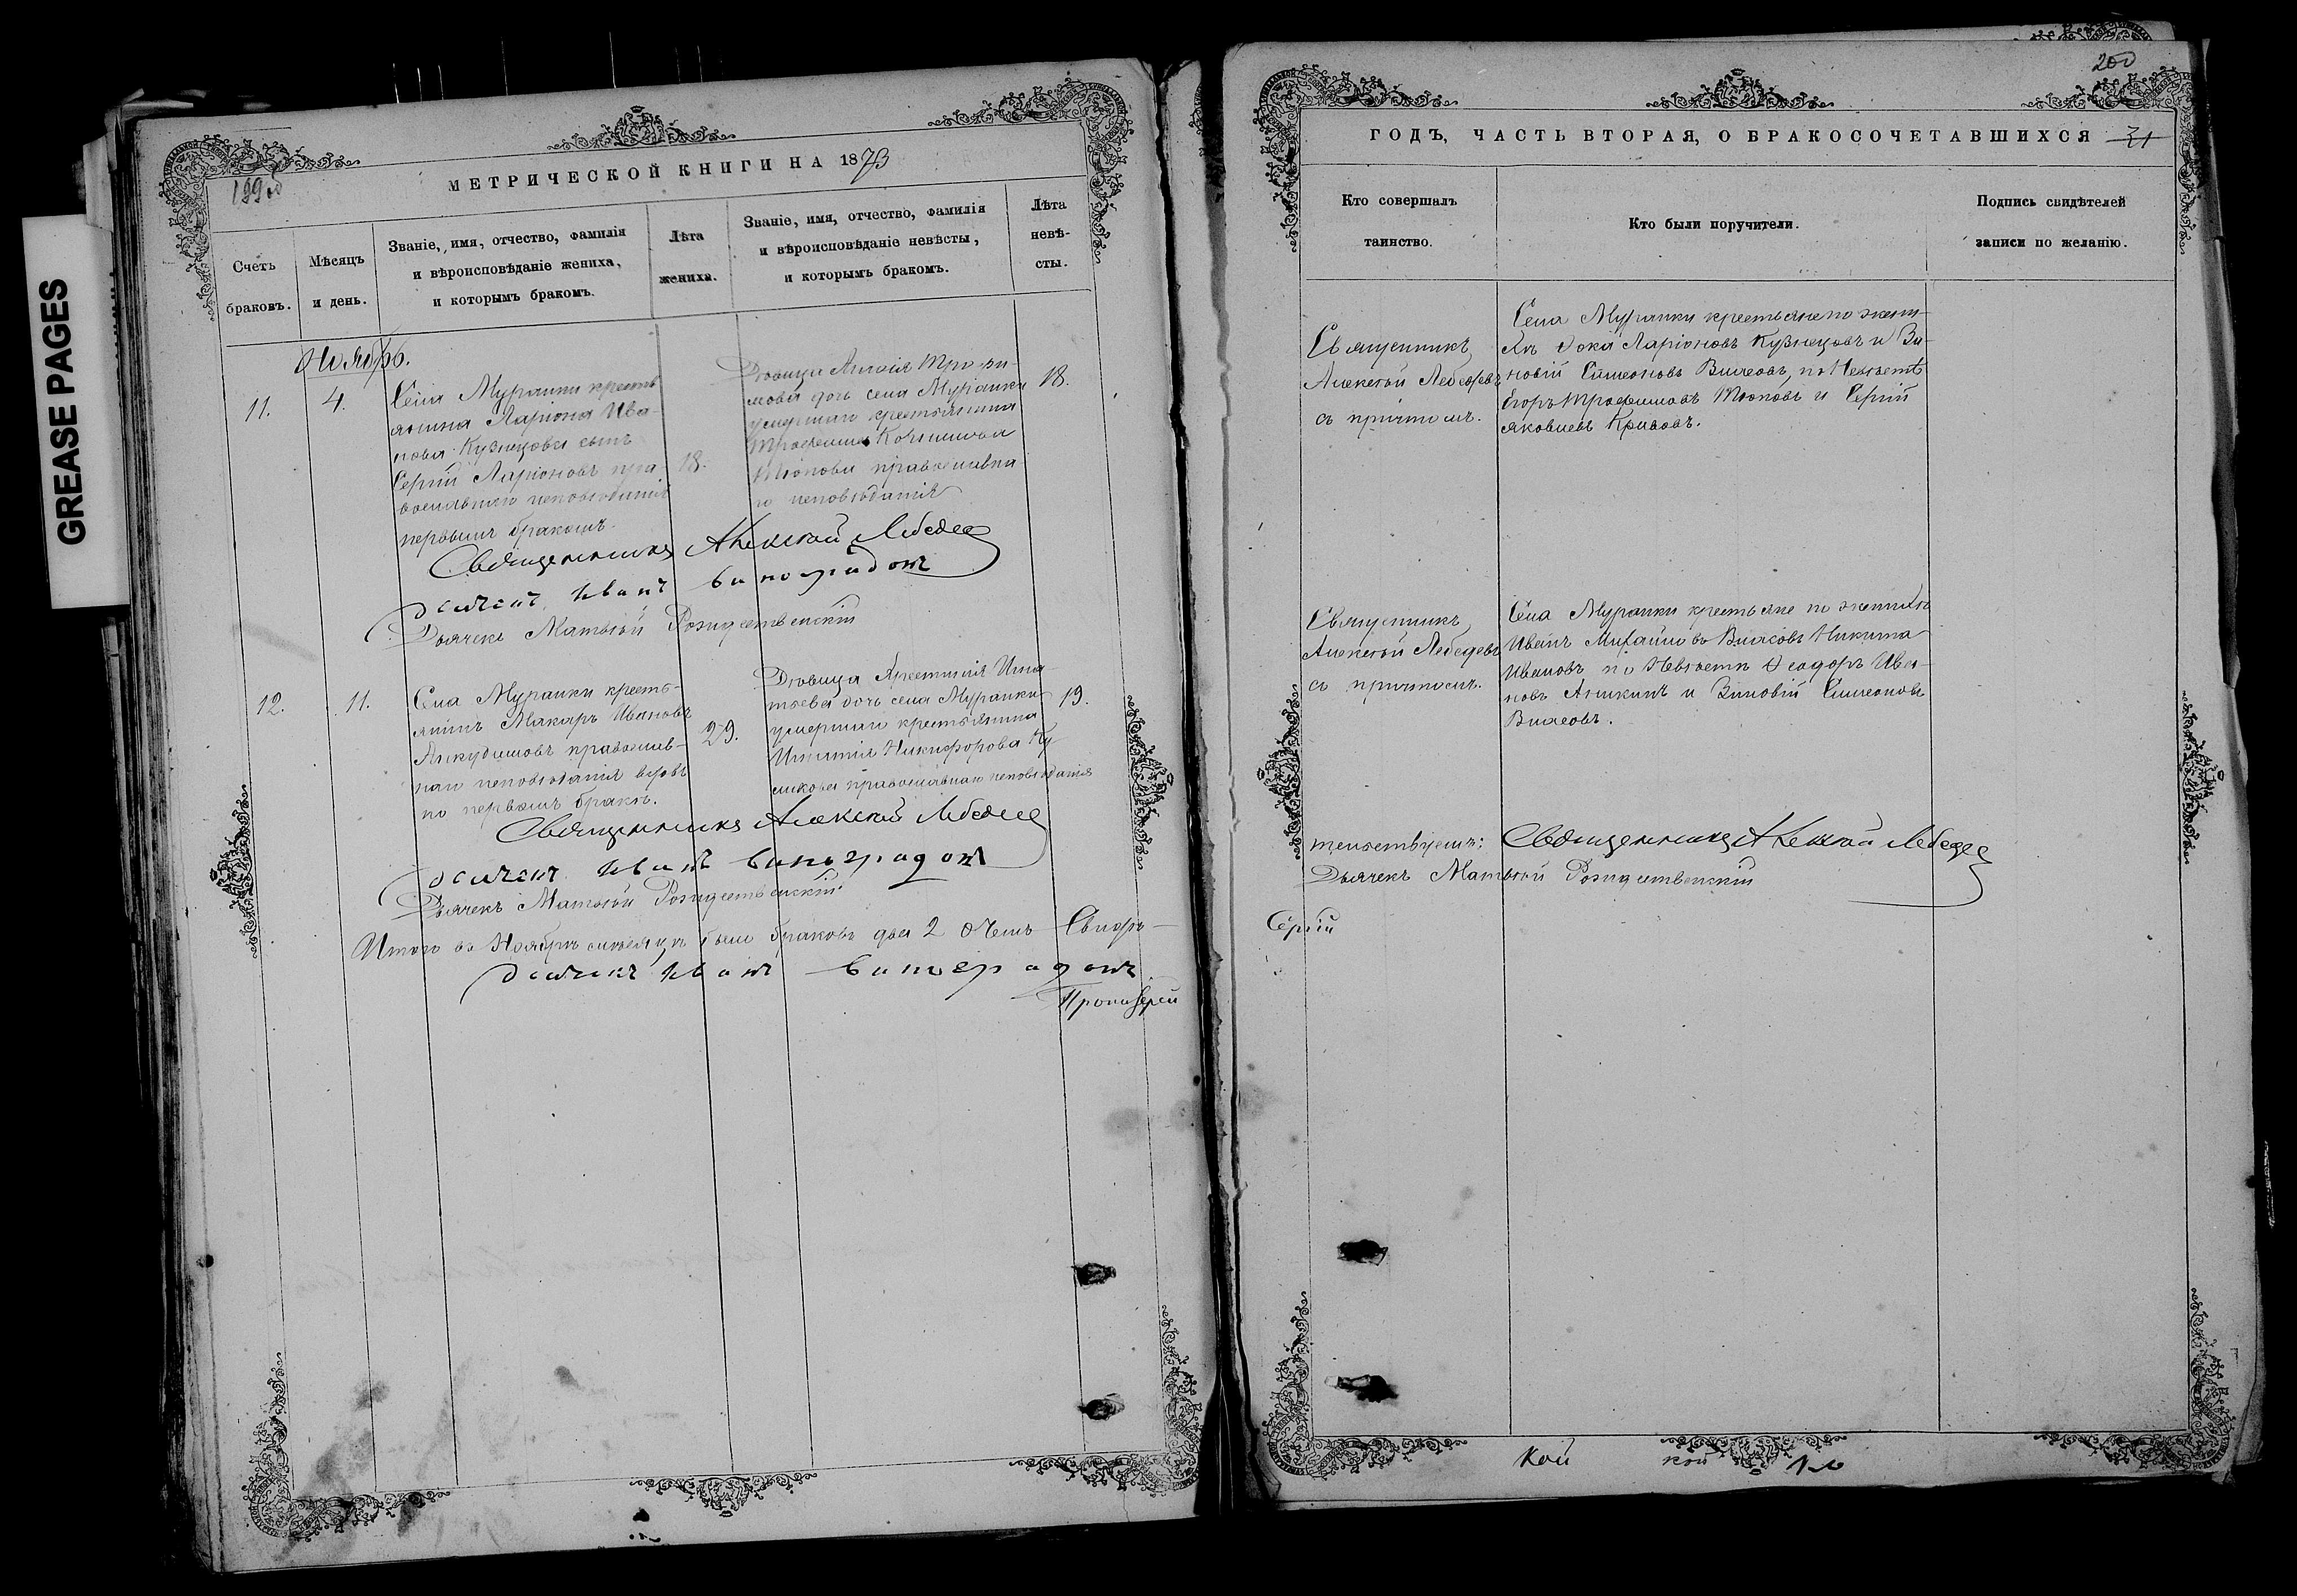 GREASE PAGES
199об
МЕТРИЧЕСКОЙ КНИГИ НА 1873
Счетъ браковъ.
Мѣсяцъ и день.
Званіе, имя, отчество, фамилія
и вѣроисповѣданіе жениха,
и которымъ бракомъ.
Лѣта
жениха.
Званіе, имя, отчество, фамилія
и вѣроисповѣданіе невѣсты,
и которымъ бракомъ.
Лѣта
невѣ-
сты.
Ноябрь.
11.
4.
Села Муранки кресть
янина Ларіона Ива-
нова Кузнецова сынъ
Сергій Ларіоновъ пра-
вославнаго исповѣданія
первымъ бракомъ.
18.
Дѣвица Трофи-
мова дочь села Муранки
умершаго крестьянина
Трофима
Тюпова православна
го исповѣданія
18.
Священникъ Алексѣй Лебедев
Дьячекъ Иванъ Виноградовъ
Дьячекъ Матвѣй Рождественскій
12.
11.
Села Муранки кресть-
янинъ Макаръ Ивановъ
Анкудимовъ православ-
наго исповѣданія вдовъ
по первомъ бракѣ.
29.
Дѣвица Игна-
тьева дочь села Муранки
умершаго крестьянина
Игнатія Никифорова Ку-
ликова православнаго исповѣданія
19.
Священникъ Алексѣй Лебедев
Дьячекъ Иванъ Виноградовъ
Дьячекъ Матвѣй Рождественскій
Итого въ Ноябрѣ мѣсяцѣ было браковъ два 2 о чемъ Свидѣ-
Дьячекъ Иванъ Виноградовъ
Протоіерей
200
ГОДЪ, ЧАСТЬ ВТОРАЯ, О БРАКОСОЧЕТАВШИХСЯ 31
Кто совершалъ
таинство.
Кто были поручители.
Подпись свидѣтелей
записи по желанію.
Священникъ
Алексѣй Лебедевъ
съ причтомъ.
Села Муранки крестьяне по жени-
хѣ Ѳока Ларіоновъ Кузнецовъ и Зи-
новій Симеоновъ Власовъ, по Невѣстѣ
Егоръ Трофимовъ Тюповъ и Сергій
Яковлевъ Кривовъ.
Священникъ
Алексѣй Лебедевъ
съ причтомъ.
Села Муранки крестьяне по женихѣ
Иванъ Михайловъ Власовъ Никита
Ивановъ по Невѣстѣ Ѳеодоръ Ива-
новъ Аникинъ и Зиновій Симеоновъ
Власовъ.
тельствуемъ: Священникъ Алексѣй Лебедев
Дьячекъ Матвѣй Рождественскій
Сергій
кой
кой